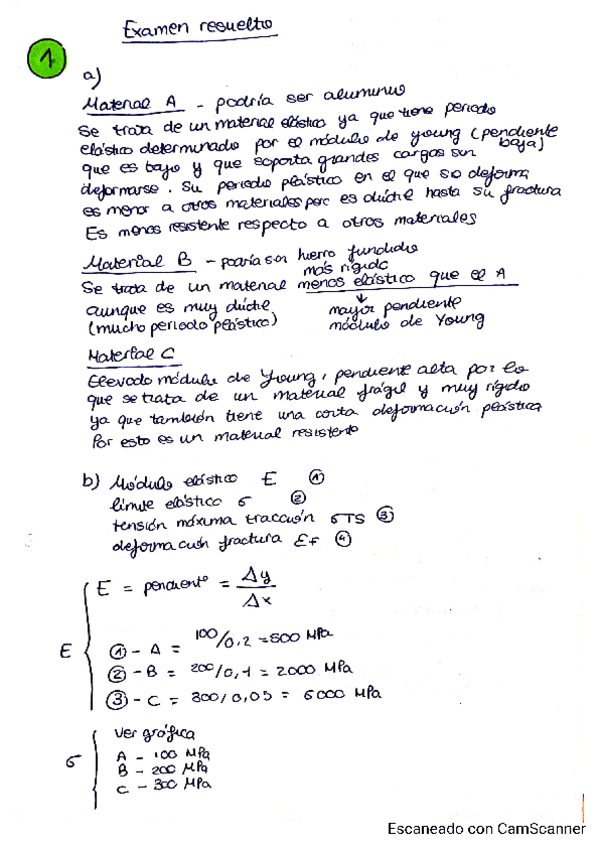 Examen resuelto
1
a)
Material A - podría ser aluminio
Se trata de un material elástico ya que tiene periodo
elástico determinado por el módulo de young (pendiente
baja)
que es bajo y que soporta grandes cargas sin
deformarse. Su periodo plástico en el que se deforma
es menor a otros materiales pero es dúctil hasta su fractura
Es menos resistente respecto a otros materiales
Material B - podría ser hierro fundido
más rígido
Se trata de un material menos elástico que el A
aunque es muy dúctil
(mucho periodo plástico)
↓
mayor pendiente
módulo de Young
Material C
Elevado módulo de Young, pendiente alta por lo
que se trata de un material frágil y muy rígido
ya que también tiene una corta deformación plástica
Por esto es un material resistente
b) Módulo elástico E ①
límite elástico σ ②
tensión máxima tracción σTS ③
deformación fractura Ef ④
E = pendiente = Δy / Δx
E
① - A = 100/0,2 = 500 MPa
② - B = 200/0,1 = 2000 MPa
③ - C = 300/0,05 = 6000 MPa
σ
Ver gráfica
A - 100 MPa
B - 200 MPa
C - 300 MPa
Escaneado con CamScanner